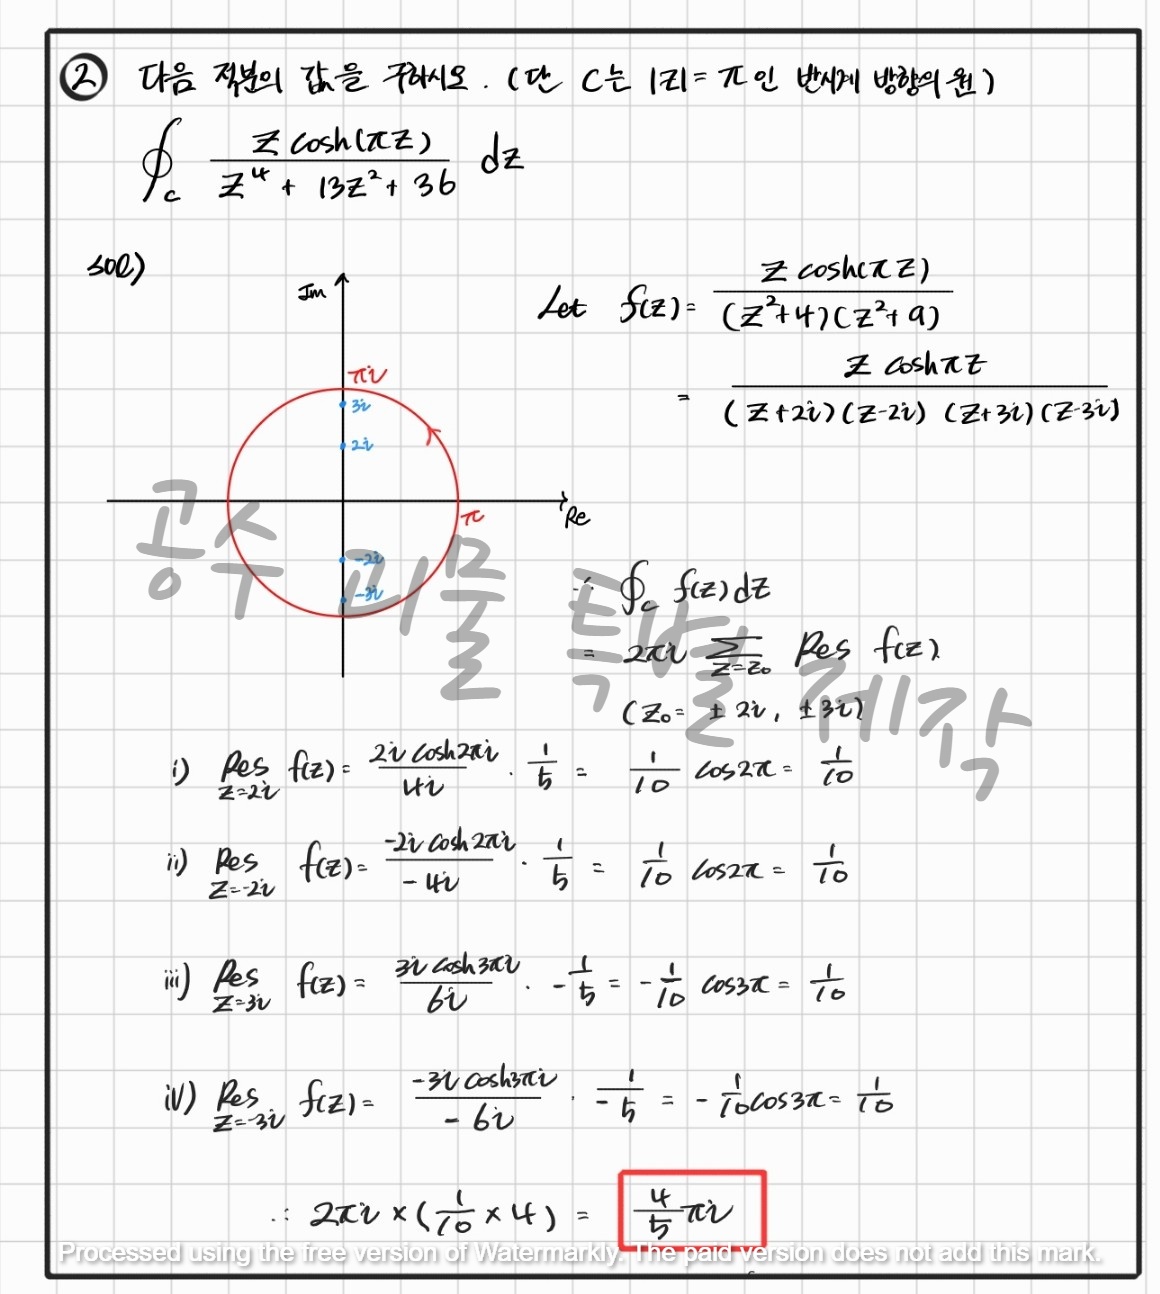 ② 다음 적분의 값을 구하시오. (단 C는 |z| = π 인 반시계 방향의 원)
∮_C z cosh(πz) / (z⁴ + 13z² + 36) dz
sol)
Let f(z) = z cosh(πz) / (z²+4)(z²+9)
= z cosh πz / (z+2i)(z-2i)(z+3i)(z-3i)
Im
πi
3i
2i
π
Re
-2i
-3i
∴ ∮_C f(z)dz
= 2πi Σ_{z=z₀} Res f(z)
(z₀ = ± 2i, ± 3i)
공수 리믈 특별 제작
i) Res_{z=2i} f(z) = 2i cosh2πi / 4i · 1/5 = 1/10 cos2π = 1/10
ii) Res_{z=-2i} f(z) = -2i cosh2πi / -4i · 1/5 = 1/10 cos2π = 1/10
iii) Res_{z=3i} f(z) = 3i cosh3πi / 6i · -1/5 = -1/10 cos3π = 1/10
iv) Res_{z=-3i} f(z) = -3i cosh3πi / -6i · 1/-5 = -1/10 cos3π = 1/10
∴ 2πi × (1/10 × 4) = 4/5 πi
Processed using the free version of Watermarkly. The paid version does not add this mark.